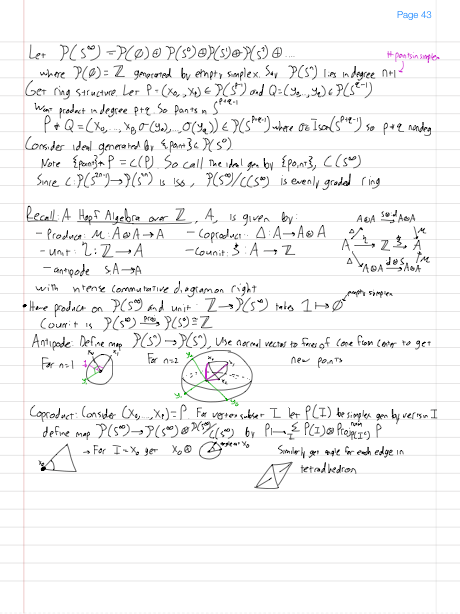 Page 43
Let P(S^∞) = P(∅) ⊕ P(S^0) ⊕ P(S^1) ⊕ P(S^2) ⊕ ....
# points in simplex
where P(∅) = Z generated by empty simplex. Say P(S^n) lies in degree n+1
Get ring structure. Let P = (x_0,..,x_p) ∈ P(S^{p-1}) and Q = (y_0,..,y_q) ∈ P(S^{q-1})
Want product in degree p+q. So points in S^{p+q-1}
P * Q = (x_0,..,x_p, σ(y_0),..,σ(y_q)) ∈ P(S^{p+q-1}) where σ ∈ Isom(S^{p+q-1}) so P*Q nondeg
Consider ideal generated by {point} ∈ P(S^0)
Note {point} * P = C(P). So call the ideal gen by {point}, C(S^∞)
Since C: P(S^{2n-1}) → P(S^{2n}) is iso, P(S^∞)/C(S^∞) is evenly graded ring
Recall: A Hopf Algebra over Z, A, is given by:
- Product: M: A⊗A → A - Coproduct: Δ: A → A⊗A
- unit: η: Z → A - Counit: ξ: A → Z
- antipode S: A → A
A⊗A S⊗id→ A⊗A
A → Z → A
A⊗A id⊗S→ A⊗A
with intense commutative diagram on right
• Have product on P(S^∞) and unit: Z → P(S^∞) takes 1 ↦ ∅
empty simplex
Counit is P(S^∞) proj→ P(S^0) ≅ Z
Antipode: Define map P(S^n) → P(S^n), Use normal vector to faces of cone from center to get
For n=1 For n=2 new points
Coproduct: Consider (x_0,..,x_p) = P. For vertex subset I let P(I) be simplex gen by verts in I
define map P(S^∞) → P(S^∞) ⊗ P(S^∞)/C(S^∞) by P ↦ Σ_I P(I) ⊗ Proj_{P(I)^⊥} P
→ For I = x_0 get x_0 ⊗ angle at x_0
Similarly get angle for each edge in
tetradhedron